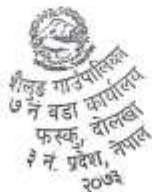 शैलुङ गाउँपालिका
७ नं वडा कार्यालय
फस्कु, दोलखा
३ नं. प्रदेश, नेपाल
२०७३